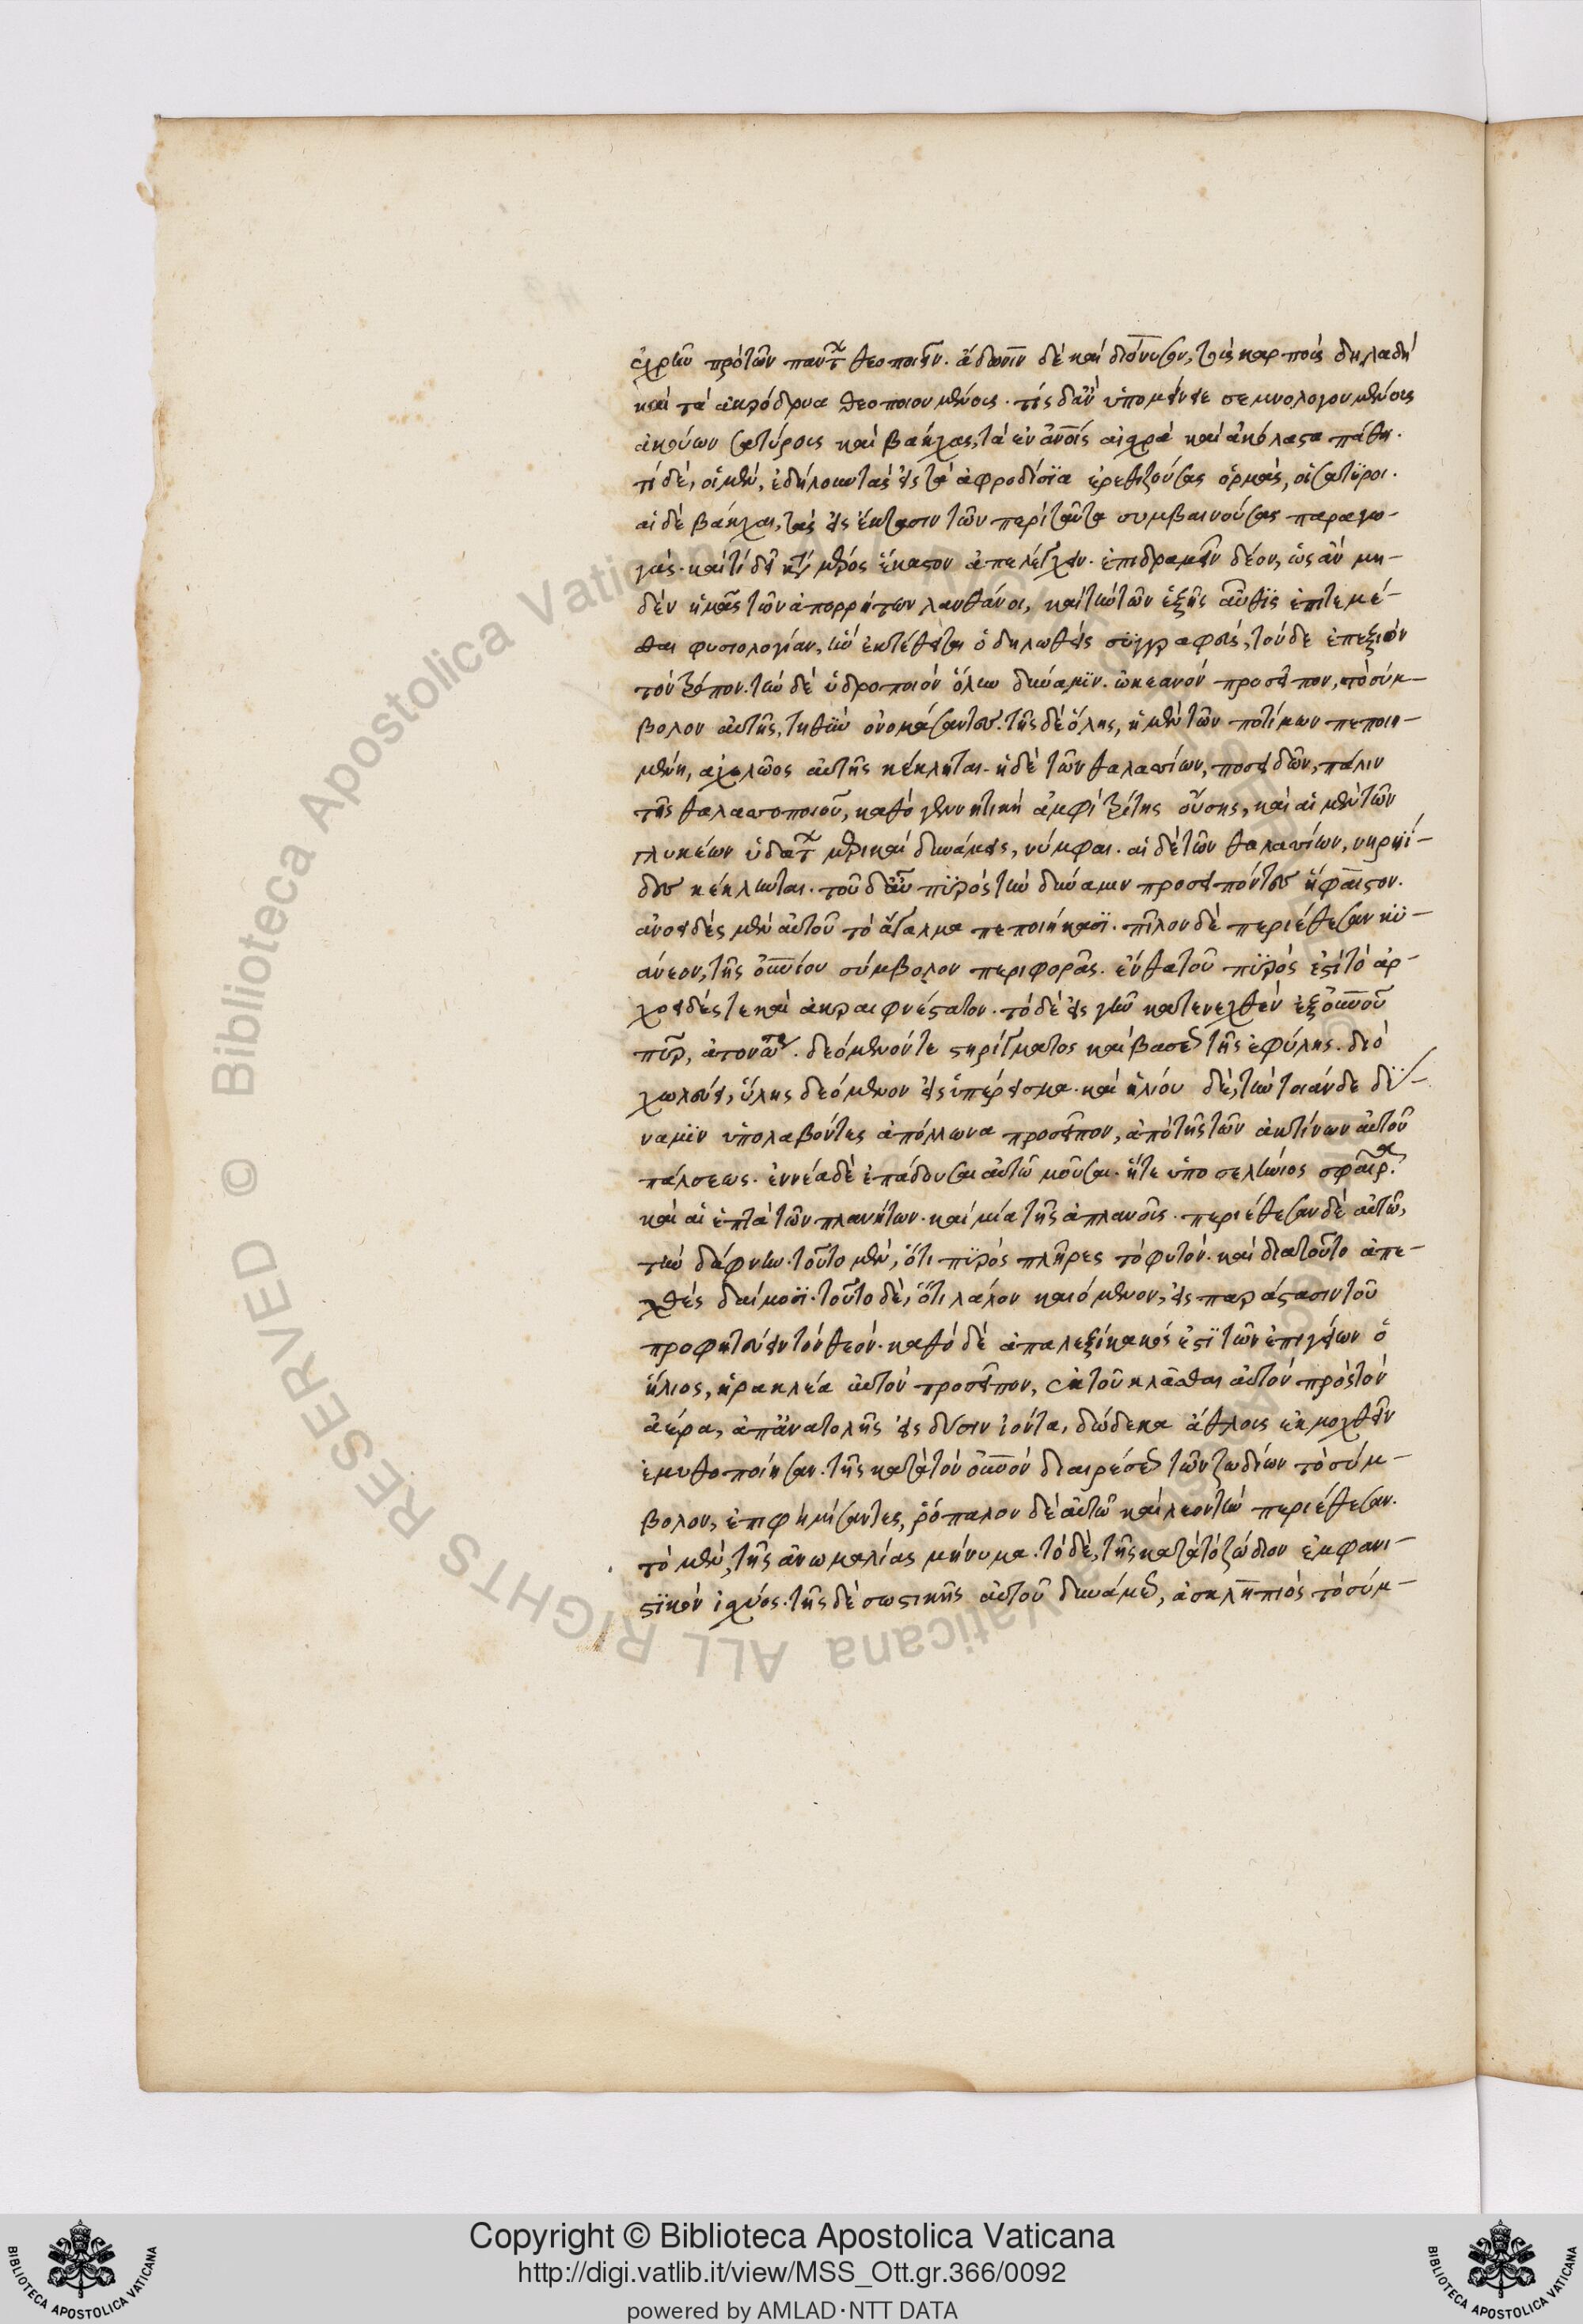 ἐχρῆν πρὸ τῶν πάντων θεοποιεῖν. ἄδωνιν δὲ καὶ διόνυσον, τοῖς καρποῖς δηλαδὴ
καὶ τὰ ἀκρόδρυα θεοποιουμένοις. τίς δ' ἂν ὑπομείνειε σεμνολογουμένοις
ἀκούων σατύροις καὶ βάκχαις, τὰ ἐν ἀνοῖς αἰσχρὰ καὶ ἀκόλαστα πάθη.
τί δὲ, οἱ μὲν, ἐδήλουν τὰς εἰς τὰ ἀφροδίσϊα ἐρεθιζούσας ὁρμάς, οἱ σάτϋροι.
αἱ δὲ βάκχαι, τὰς εἰς ἔκστασιν τῶν περὶ ταῦτα συμβαινούσας παραγω-
γάς. καὶ τί δεῖ κατὰ μέρος ἕκαστον ἀπελέγχειν. ἐπιδραμεῖν δέον, ὡς ἂν μη-
δὲν ἡμᾶς τῶν ἀπορρήτων λανθάνοι, καὶ τὴν τῶν ἑξῆς αὖθϊς ἐπιτεμέ-
σθαι φυσιολογίαν, ἣν ἐκτέθειται ὁ δηλωθεὶς συγγραφεύς, τόνδε ἐπεξιὼν
τὸν τρόπον. τὴν δὲ ὑδροποιὸν ὅλην δύναμϊν. ὠκεανὸν προσεῖπον, τὸ σύμ-
βολον αὐτῆς, τηθὺν ὀνομάσαντες. τῆς δὲ ὅλης, ἡ μὲν τῶν ποτίμων πεποιη-
μένη, ἀχελῶος αὐτῆς κέκληται. ἡ δὲ τῶν θαλασσίων, ποσειδῶν, πάλιν
τῆς θαλασσοποιοῦ, καθὸ γεννητικὴ ἀμφιτρίτης οὔσης, καὶ αἱ μὲν τῶν
γλυκέων ὑδάτων μερικαὶ δυνάμεις, νύμφαι. αἱ δὲ τῶν θαλασσίων, νηρηΐ-
δες κέκληνται. τοῦ δ' αὖ πϋρὸς τὴν δύναμιν προσειπόντες ἥφαιστον.
ἀνοειδὲς μὲν αὐτοῦ τὸ ἄγαλμα πεποιήκασϊ. πῖλον δὲ περιέθεσαν κϋ-
άνεον, τῆς οὐνίου σύμβολον περιφορᾶς. ἔνθα τοῦ πϋρός ἐστὶ τὸ ἀρ-
χοειδές τε καὶ ἀκραιφνέστατον. τὸ δὲ εἰς γῆν κατενεχθὲν ἐξ οὐνοῦ
πῦρ, ἀτονώτερον. δεόμενόν τε στηρίγματος καὶ βάσεως τῆς ἐφ' ὕλης. διὸ
χωλεύει, ὕλης δεόμενον εἰς ὑπέρεισμα. καὶ ἡλίου δὲ, τὴν τοιάνδε δύ-
ναμϊν ὑπολαβόντες ἀπόλλωνα προσεῖπον, ἀπὸ τῆς τῶν ἀκτίνων αὐτοῦ
πάλσεως. ἐννέα δὲ ἐπάδουσαι αὐτῶ μοῦσαι. ἥ τε ὑπο σελήνιος σφαῖρα.
καὶ αἱ ἑπτὰ τῶν πλανήτων. καὶ μία τῆς ἀπλανοῦς. περιέθεσαν δὲ αὐτῶ,
τὴν δάφνην. τοῦτο μὲν, ὅτι πϋρὸς πλῆρες τὸ φυτόν. καὶ διατοῦτο ἀπε-
χθὲς δαίμοσϊ. τοῦτο δὲ, ὅτι λάλον καιόμενον, εἰς παράστασιν τοῦ
προφητεύειν τὸν θεόν. καθὸ δὲ ἀπαλεξίκακός ἐστϊ τῶν ἐπιγείων ὁ
ἥλιος, ἡρακλέα αὐτὸν προσεῖπον, ἐκ τοῦ κλᾶσθαι αὐτὸν πρὸς τὸν
ἀέρα, ἀπ' ἀνατολῆς εἰς δύσιν ἰόντα, δώδεκα ἄθλοις ἐκμοχθεῖν
ἐμυθοποίησαν. τῆς κατὰ τὸν οὐνὸν διαιρέσεως τῶν ζωδίων τὸ σύμ-
βολον, ἐπιφημίσαντες, ῥόπαλον δὲ αὐτῶ καὶ λεοντῆν περιέθεσαν.
τὸ μὲν, τῆς ἀνωμαλίας μήνυμα. τὸ δὲ, τῆς κατὰ τὸ ζώδιον ἐμφανι-
στϊκὸν ἰσχύος. τῆς δὲ σωστικῆς αὐτοῦ δυνάμεως, ἀσκληπιὸς τὸ σύμ-
Copyright © Biblioteca Apostolica Vaticana
http://digi.vatlib.it/view/MSS_Ott.gr.366/0092
powered by AMLAD·NTT DATA